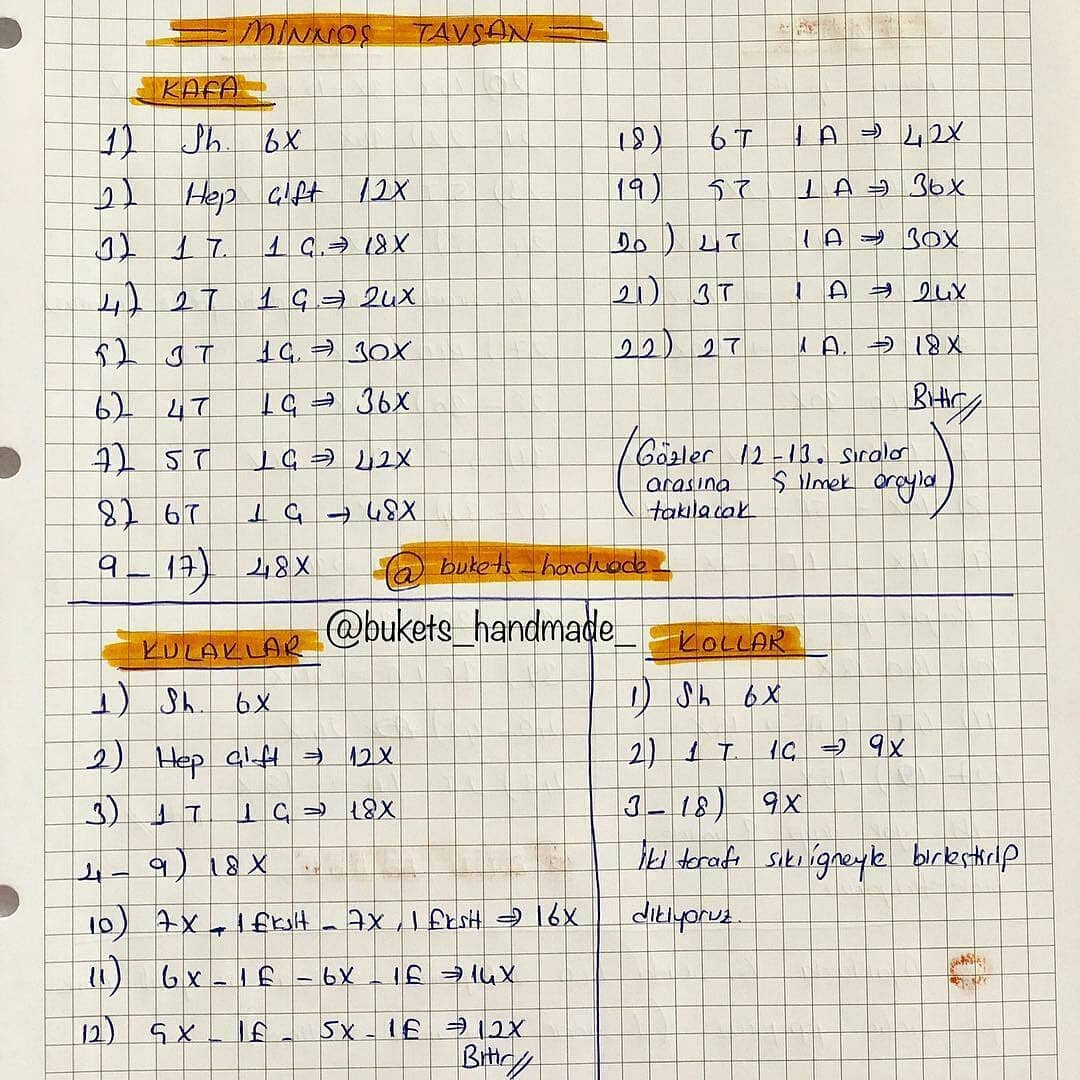 MINNOŞ TAVŞAN
KAFA
1) Sh. 6X
2) Hep çift 12X
3) 1 T. 1 Ç. ⇒ 18X
4) 2T 1 Ç. ⇒ 24X
5) 3T 1Ç. ⇒ 30X
6) 4T 1Ç ⇒ 36X
7) 5T 1Ç ⇒ 42X
8) 6T 1 Ç → 48X
9-17) 48X
18) 6T 1 A ⇒ 42X
19) 5T 1 A ⇒ 36X
20) 4T 1 A ⇒ 30X
21) 3T 1 A ⇒ 24X
22) 2T 1 A. ⇒ 18X
Bitir//
(Gözler 12-13. sıralar
arasına 5 ilmek arayla
takılacak)
@bukets_handmade_
@bukets_handmade_
KULAKLAR
1) Sh. 6X
2) Hep çift ⇒ 12X
3) 1 T. 1 Ç ⇒ 18X
4-9) 18X
10) 7X - 1 Eksilt - 7X, 1 Eksilt ⇒ 16X
11) 6X - 1E - 6X - 1E ⇒ 14X
12) 5X - 1E - 5X - 1E ⇒ 12X
Bitir//
KOLLAR
1) Sh 6X
2) 1 T. 1Ç ⇒ 9X
3-18) 9X
İki tarafı sık iğneyle birleştirip
dikiyoruz.